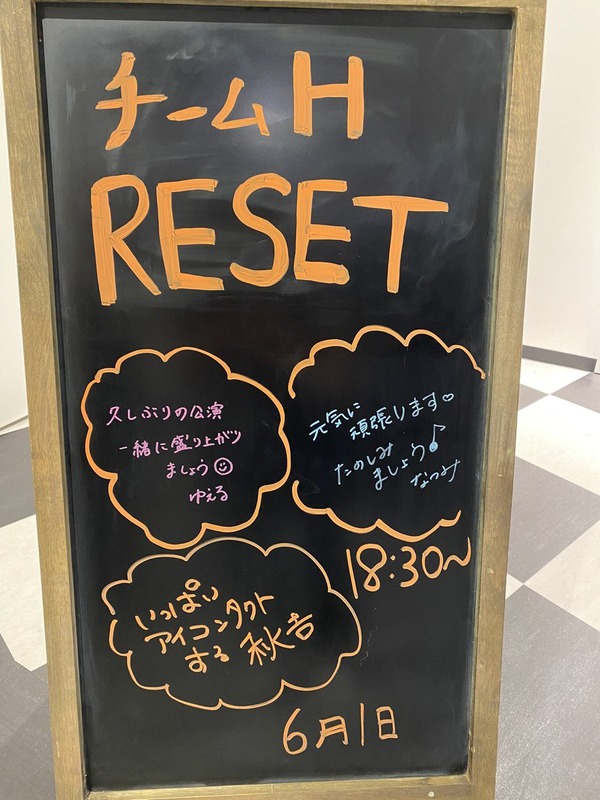 チームH
RESET
久しぶりの公演
一緒に盛り上がり
ましょう
ゆえる
元気に
頑張ります♡
たのしみ
ましょう♪
なつみ
いっぱい
アイコンタクト
する 秋吉
18:30~
6月1日